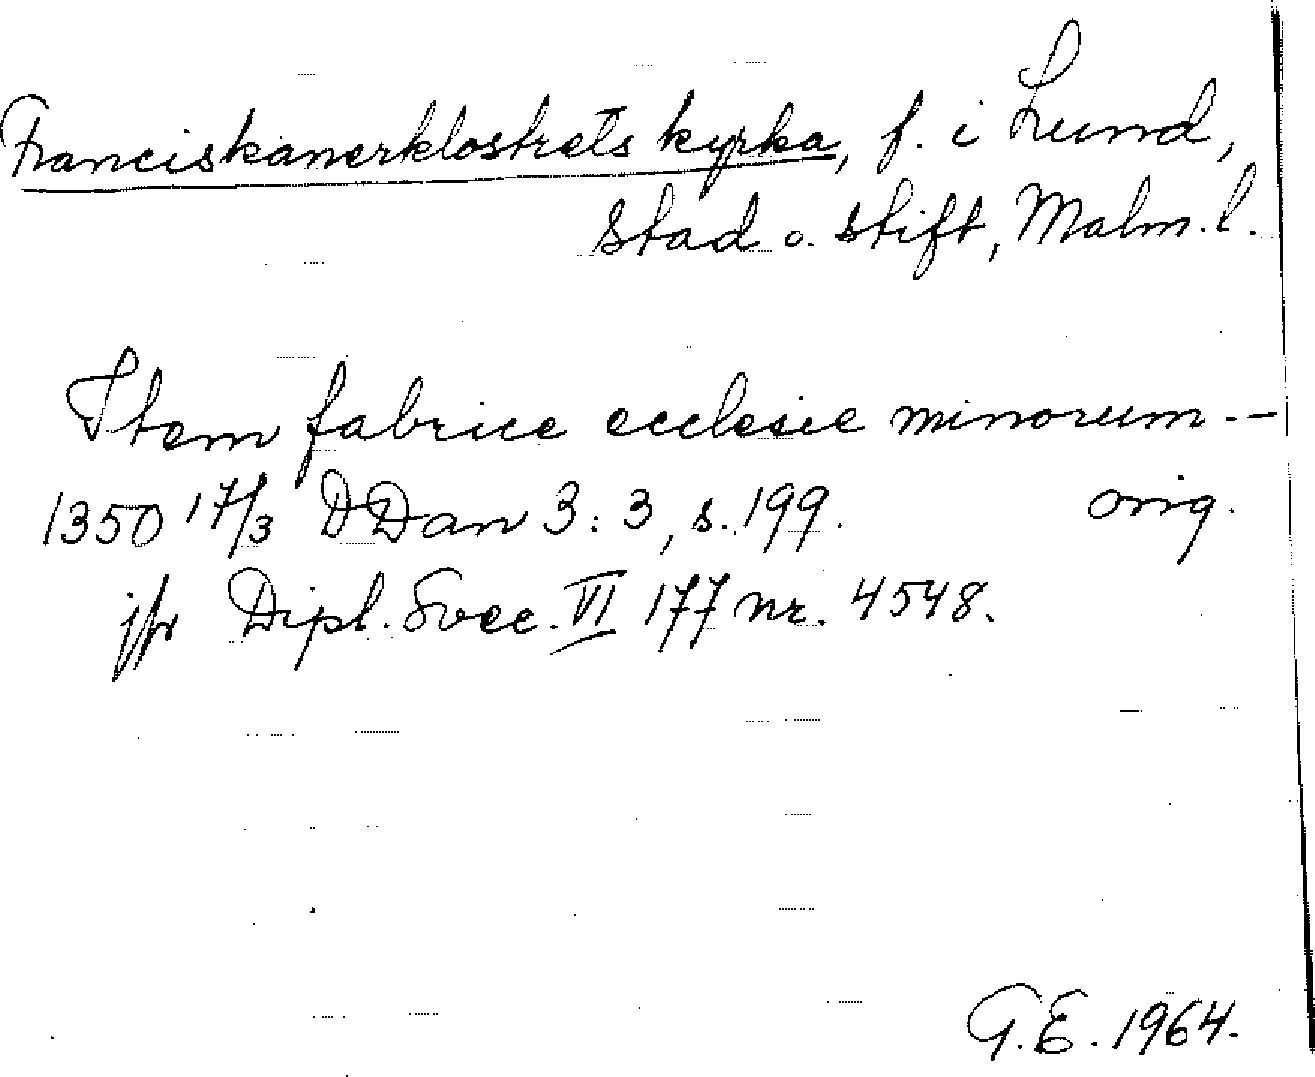 Franciskanerklostrets kyrka, f. i Lund,
stad o. stift, Malm. l.
Item fabrice ecclesie minorum --
1350 17/3 DDan 3:3, s. 199. orig.
jfr Dipl. Svec. VI 177 nr. 4548.
G.E. 1964.